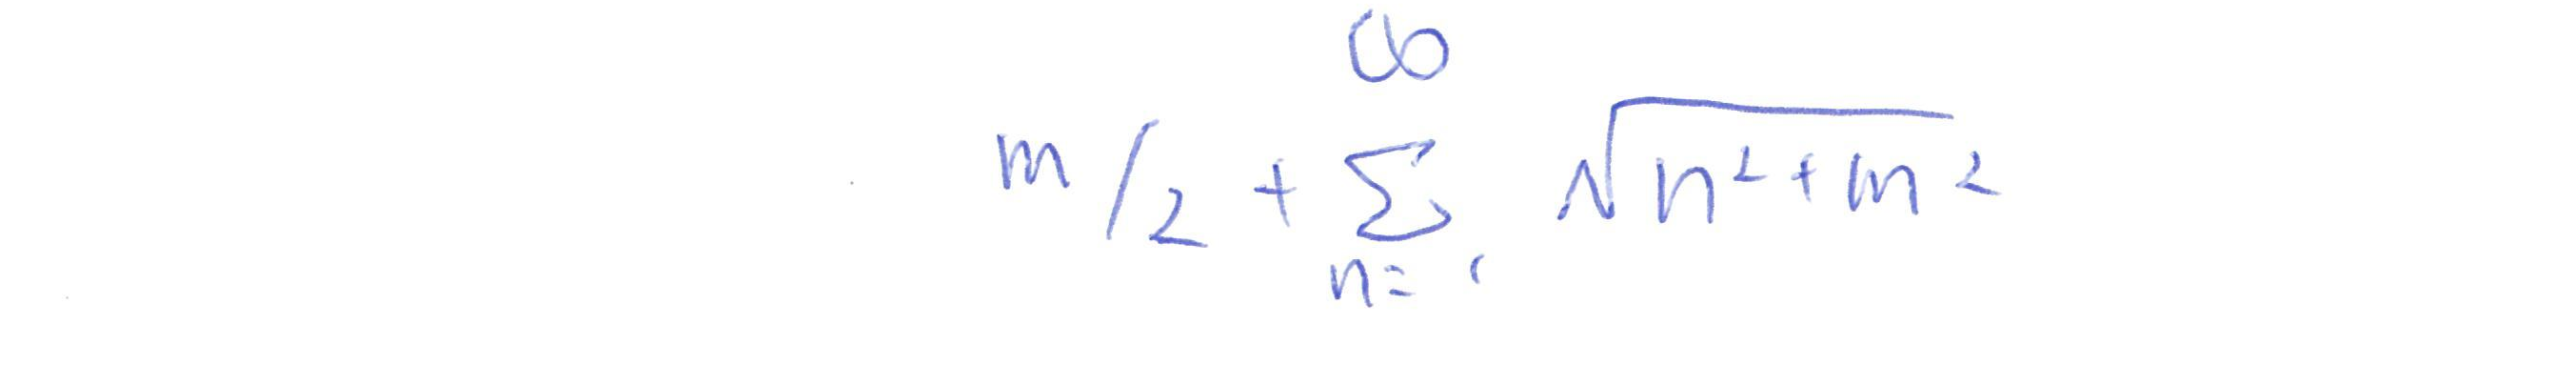 m/2 + ∑_{n=1}^{∞} √(n² + m²)